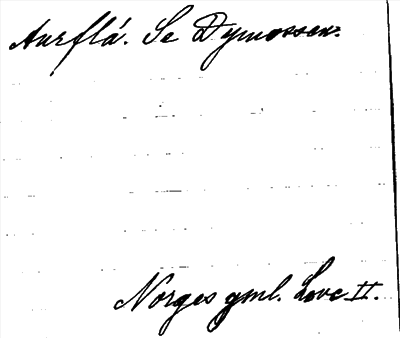 Aurflá. Se Dymossen.
Norges gml. Love II.